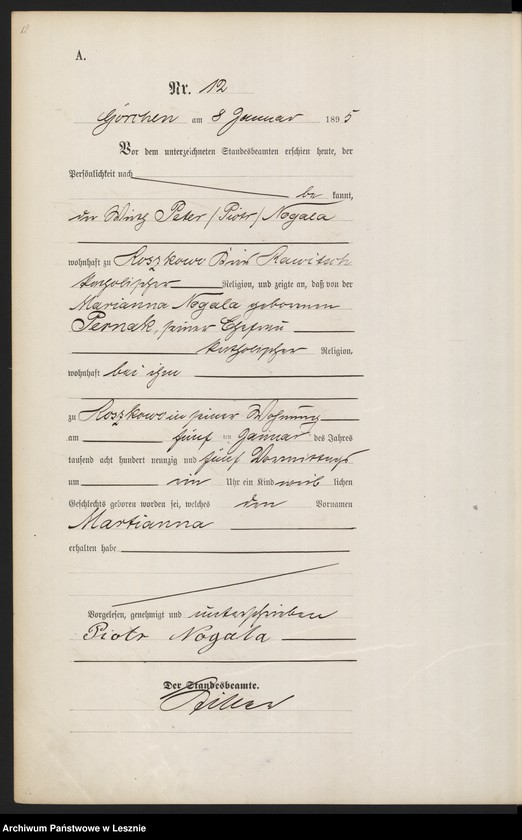 A.
Nr. 12
Görchen am 8 Januar 1895
Vor dem unterzeichneten Standesbeamten erschien heute, der
Persönlichkeit nach
be kannt,
der Wirth Peter /Piotr/ Nogala
wohnhaft zu Roszkowo Kreis Rawitsch
katholischer Religion, und zeigte an, daß von der
Marianna Nogala geborenen
Pernak, seiner Ehefrau
katholischer Religion,
wohnhaft bei ihm
zu Roszkowo in seiner Wohnung
am fünf ten Januar des Jahres
tausend acht hundert neunzig und fünf Vormittags
um ein Uhr ein Kind weib lichen
Geschlechts geboren worden sei, welches den Vornamen
Martianna
erhalten habe
Vorgelesen, genehmigt und unterschrieben
Piotr Nogala
Der Standesbeamte.
Archiwum Państwowe w Lesznie